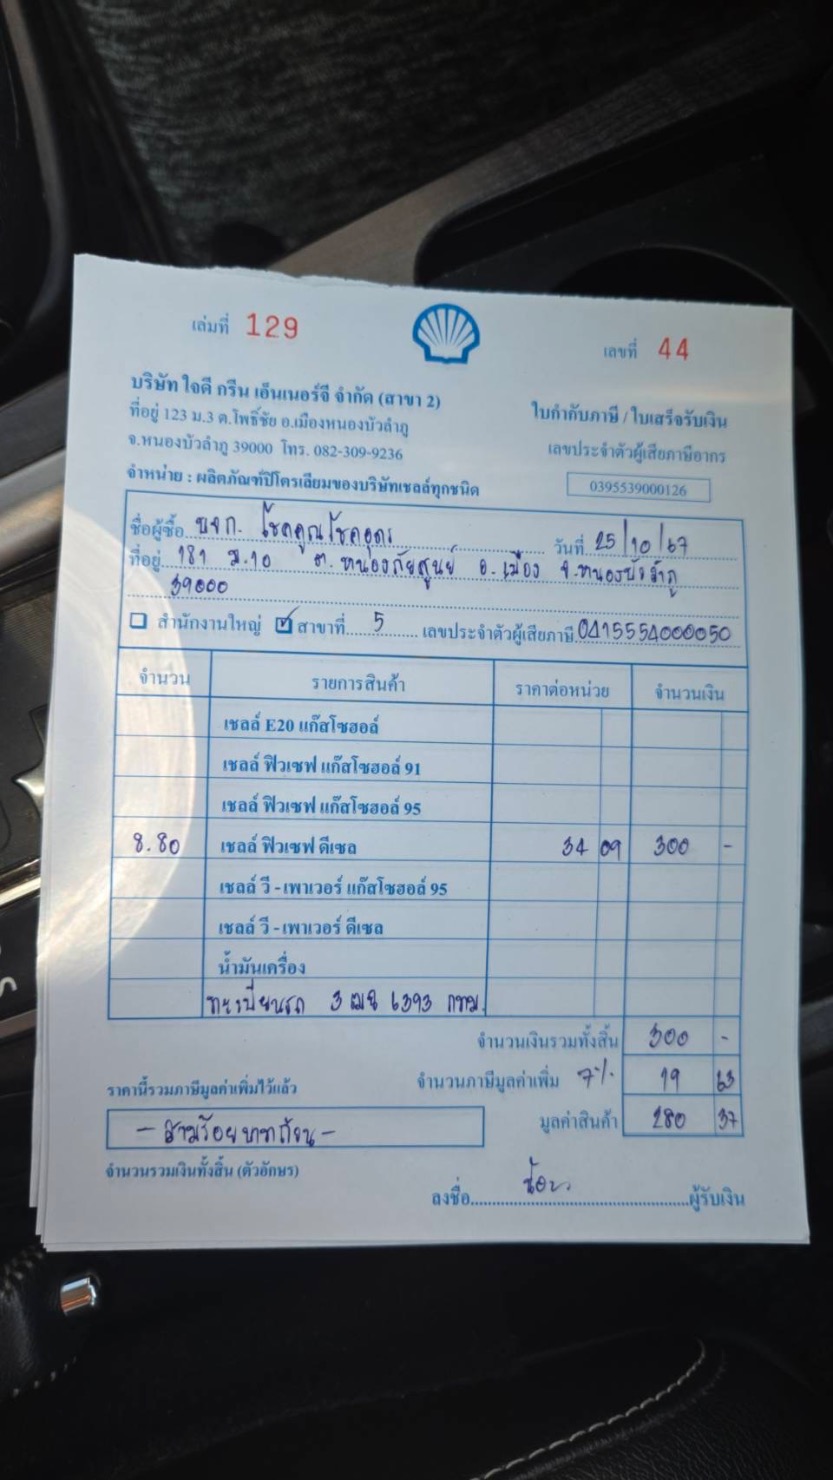 เล่มที่ 129
เลขที่ 44
บริษัท ใจดี กรีน เอ็นเนอร์จี จำกัด (สาขา 2)
ที่อยู่ 123 ม.3 ต.โพธิ์ชัย อ.เมืองหนองบัวลำภู
จ.หนองบัวลำภู 39000 โทร. 082-309-9236
จำหน่าย : ผลิตภัณฑ์ปิโตรเลียมของบริษัทเชลล์ทุกชนิด
ใบกำกับภาษี / ใบเสร็จรับเงิน
เลขประจำตัวผู้เสียภาษีอากร
0395539000126
ชื่อผู้ซื้อ บจก. โชคคูณโชคอุดร วันที่ 25/10/67
ที่อยู่ 181 ม.10 ต.หนองภัยศูนย์ อ.เมือง จ.หนองบัวลำภู
39000
สำนักงานใหญ่ ✓ สาขาที่ 5 เลขประจำตัวผู้เสียภาษี 0415554000050
จำนวน รายการสินค้า ราคาต่อหน่วย จำนวนเงิน
เชลล์ E20 แก๊สโซฮอล์
เชลล์ ฟิวเซฟ แก๊สโซฮอล์ 91
เชลล์ ฟิวเซฟ แก๊สโซฮอล์ 95
8.80 เชลล์ ฟิวเซฟ ดีเซล 34 09 300 -
เชลล์ วี - เพาเวอร์ แก๊สโซฮอล์ 95
เชลล์ วี - เพาเวอร์ ดีเซล
น้ำมันเครื่อง
ทะเบียนรถ 3 ฒษ 6393 กทม.
จำนวนเงินรวมทั้งสิ้น 300 -
ราคานี้รวมภาษีมูลค่าเพิ่มไว้แล้ว จำนวนภาษีมูลค่าเพิ่ม 7% 19 63
- สามร้อยบาทถ้วน - มูลค่าสินค้า 280 37
จำนวนรวมเงินทั้งสิ้น (ตัวอักษร)
ลงชื่อ ผู้รับเงิน